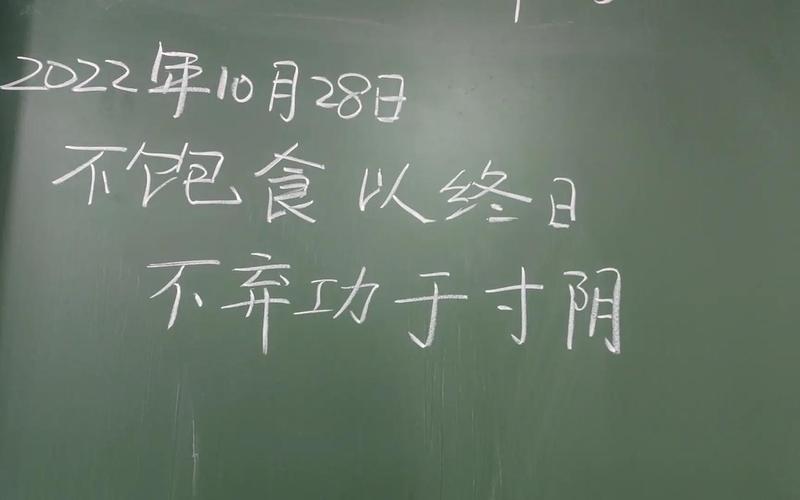 2022年10月28日
不饱食以终日
不弃功于寸阴